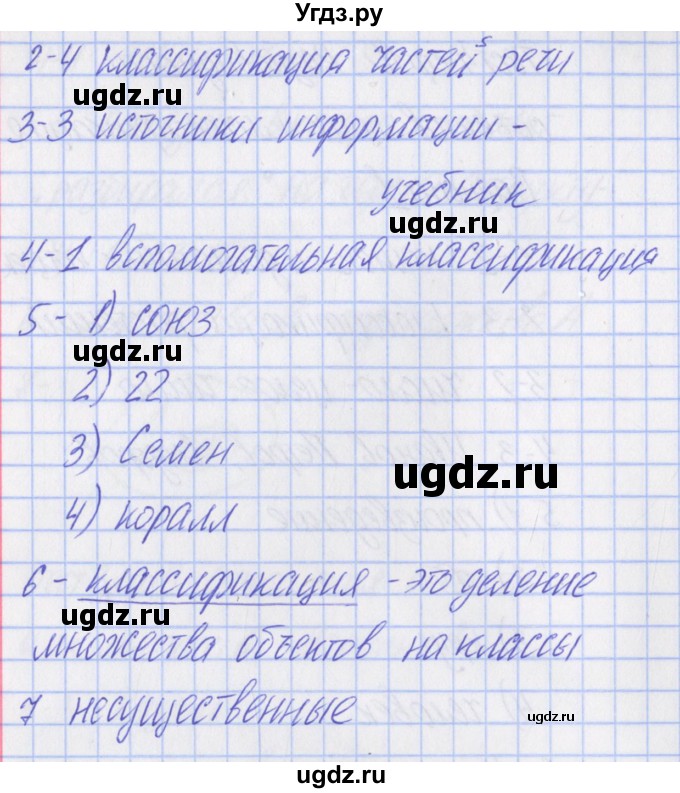 Угдз.ру
2-4 классификация частей речи
ugdz.ru
3-3 источники информации -
учебник
ugdz.ru
4-1 вспомогательная классификация
5- 1) союз
ugdz.ru
2) 22
3) Семен
ugdz.ru
4) коралл
6- классификация - это деление
ugdz.ru
множества объектов на классы
7 несущественные
ugdz.ru
ugdz.ru